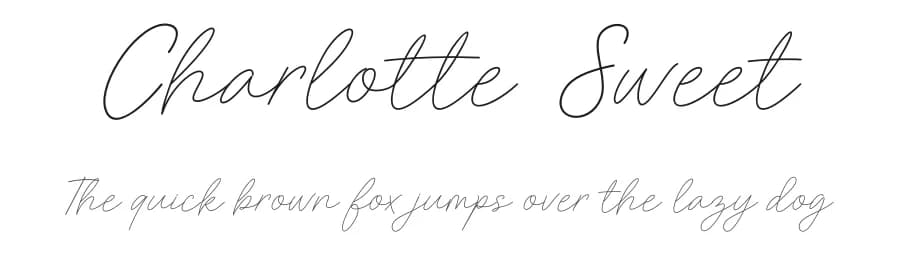 Charlotte Sweet
The quick brown fox jumps over the lazy dog